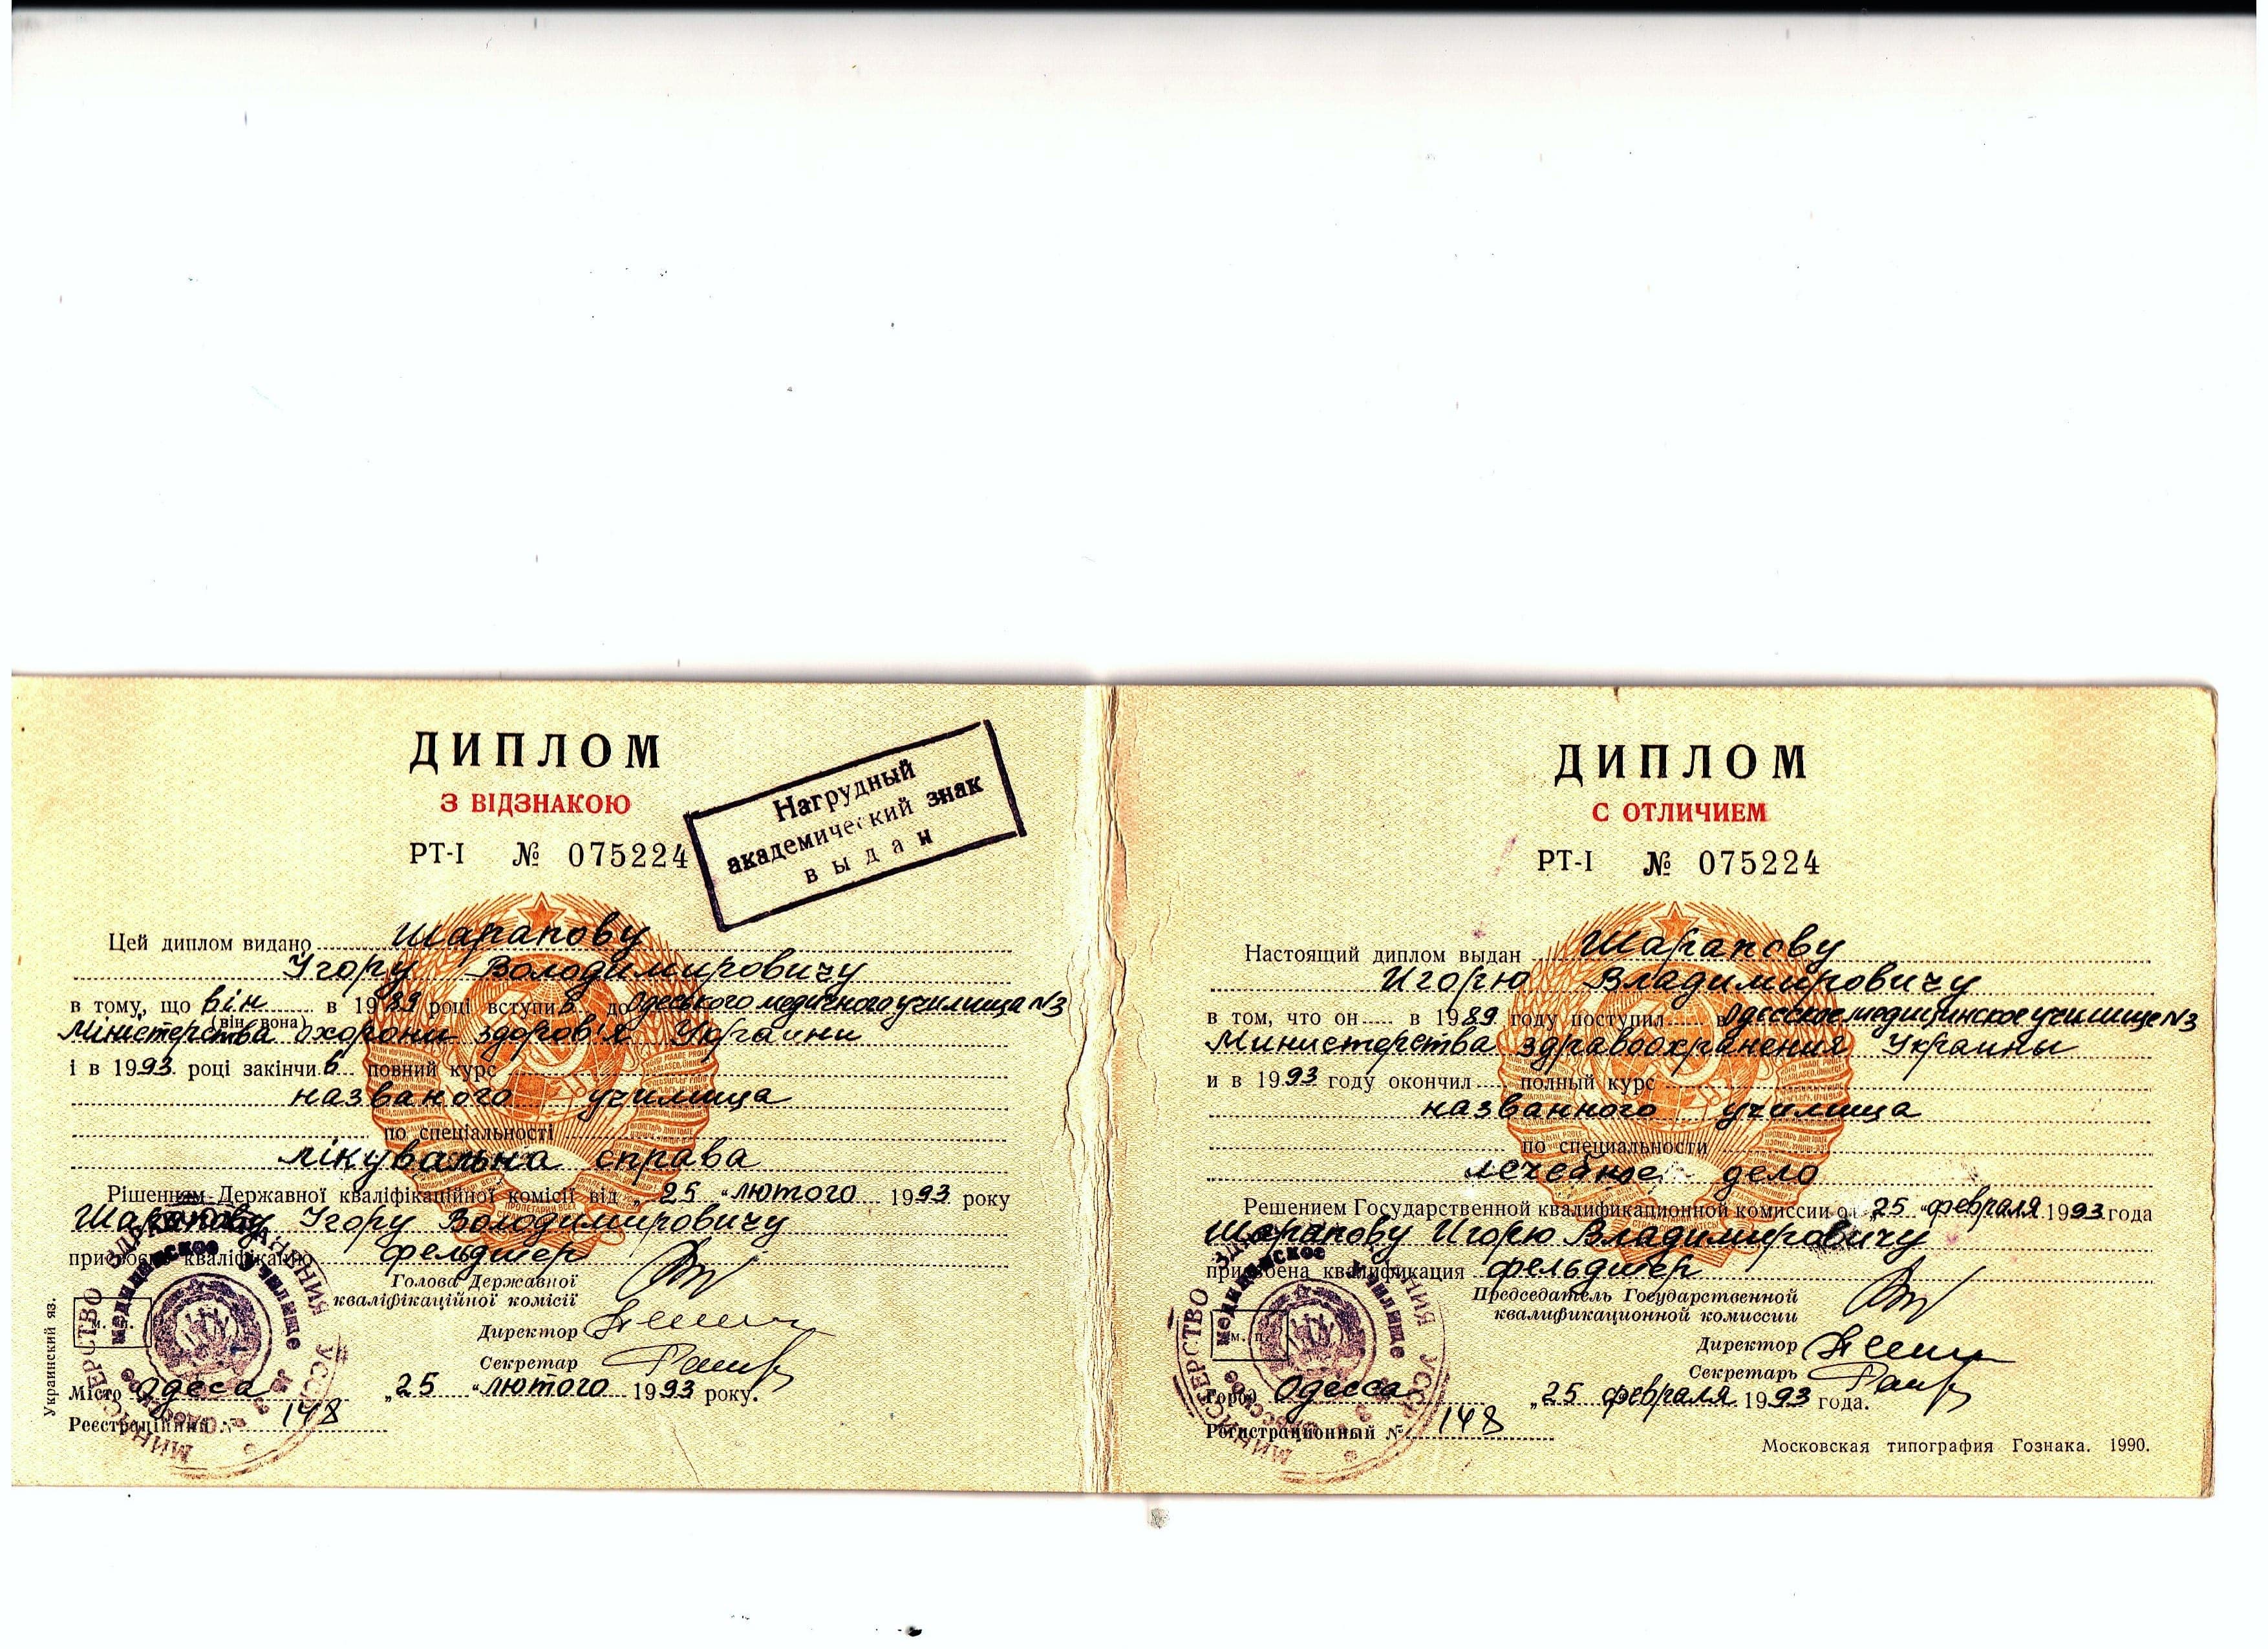 ДИПЛОМ
З ВІДЗНАКОЮ
РТ-I № 075224
Нагрудный
академический знак
выдан
Цей диплом видано Шарапову
Ігору Володимировичу
в тому, що він в 1989 році вступив до Одеського медичного училища №3
(він, вона)
Міністерства охорони здоров'я України
і в 1993 році закінчив повний курс
названого училища
по спеціальності
лікувальна справа
Рішенням Державної кваліфікаційної комісії від „25“ лютого 1993 року
Шарапову Ігору Володимировичу
присвоєно кваліфікацію фельдшер
Голова Державної
кваліфікаційної комісії
Директор
Секретар
м. п.
Місто Одеса „25“ лютого 1993 року.
Реєстраційний № 148
Украинский яз.
МИНИСТЕРСТВО ЗДРАВООХРАНЕНИЯ УССР
Одесское медицинское училище № 3
ДИПЛОМ
С ОТЛИЧИЕМ
РТ-I № 075224
Настоящий диплом выдан Шарапову
Игорю Владимировичу
в том, что он в 1989 году поступил в Одесское медицинское училище №3
Министерства здравоохранения Украины
и в 1993 году окончил полный курс
названного училища
по специальности
лечебное дело
Решением Государственной квалификационной комиссии от „25“ февраля 1993 года
Шарапову Игорю Владимировичу
присвоена квалификация фельдшер
Председатель Государственной
квалификационной комиссии
Директор
Секретарь
м. п.
Город Одесса „25 февраля 1993 года.
Регистрационный № 148
Московская типография Гознака. 1990.
МИНИСТЕРСТВО ЗДРАВООХРАНЕНИЯ УССР
Одесское медицинское училище № 3